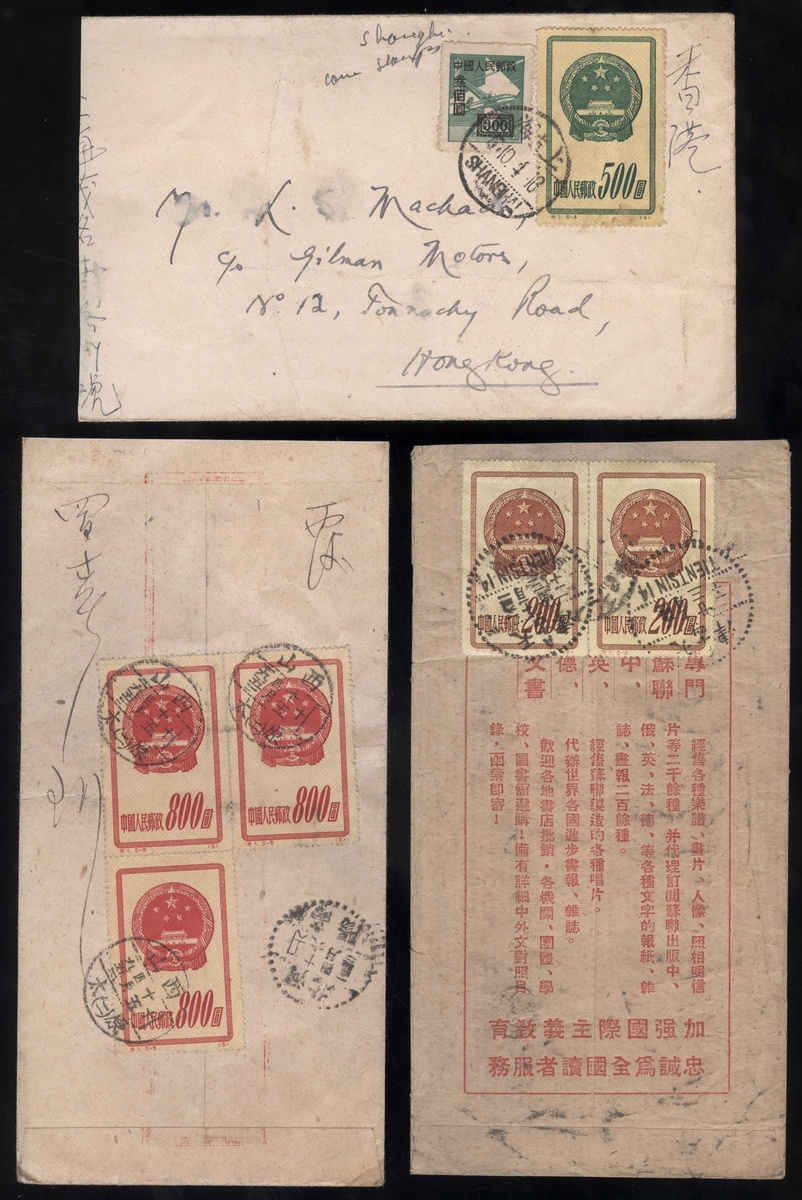 Shanghai
com stamps
中國人民郵政
叁佰圓
300
中國人民郵政 500圓
香港
SHANGHAI
Mr. L. S. Machado,
c/o Gilman Motors,
No 12, Tonnochy Road,
HongKong.
中國人民郵政 800圓
中國人民郵政 800圓
中國人民郵政 800圓
山西
中國人民郵政 200圓
中國人民郵政 200圓
TIENTSIN 14
TIENTSIN 14
專門
蘇聯
中、
英、
德、
文書
經售各種樂譜、畫片、人像、照相明信
片等二千餘種，并代理訂閱蘇聯出版中、
俄、英、法、德、等各種文字的報紙、雜
誌、畫報二百餘種。
經售蘇聯製造的各種唱片。
代辦世界各國進步書報、雜誌。
歡迎各地書店批銷，各機關、團體、學
校、圖書館選購！備有詳細中外文對照目
錄，函索卽寄！
育教義主際國强加
務服者讀國全爲誠忠